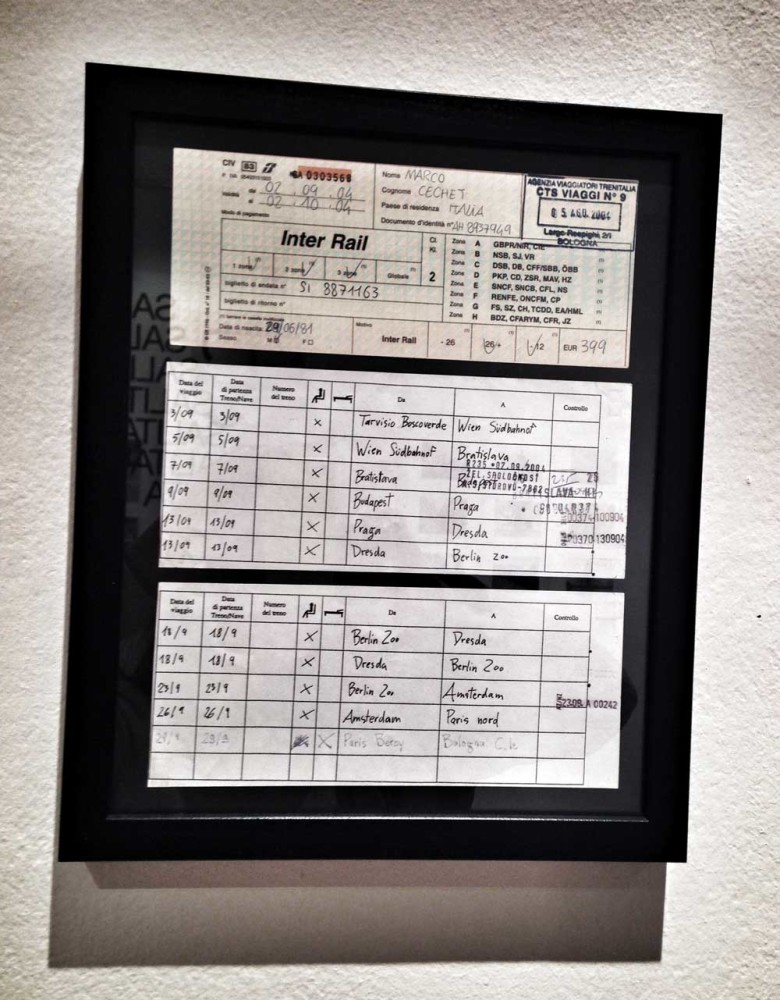 CIV 83 SA 0303568
dal 02 . 09 . 04
al 02 . 10 . 04
Modo di pagamento
Nome MARCO
Cognome CECHET
Paese di residenza ITALIA
Documento d'identità n° AH 8937949
AGENZIA VIAGGIATORI TRENITALIA
CTS VIAGGI N° 9
05 AGO. 2004
Largo Respighi, 2/1
BOLOGNA
Inter Rail
1 zona 2 zone 3 zone Globale
biglietto di andata n° SI 8871163
biglietto di ritorno n°
Cl. Kl. 2
Zona A GBPR/NIR, CIE
Zona B NSB, SJ, VR
Zona C DSB, DB, CFF/SBB, ÖBB
Zona D PKP, CD, ZSR, MAV, HZ
Zona E SNCF, SNCB, CFL, NS
Zona F RENFE, ONCFM, CP
Zona G FS, SZ, CH, TCDD, EA/HML
Zona H BDZ, CFARYM, CFR, JZ
Data di nascita: 29/06/81
Sesso M F
Motivo Inter Rail - 26 26+ - 12 EUR 399
Data del viaggio Data di partenza Treno/Nave Numero del treno Da A Controllo
3/09 3/09 x Tarvisio Boscoverde Wien Südbahnof
5/09 5/09 x Wien Südbahnof Bratislava
R235 *07.09.2004
ZEL.SPOLOCNOST
7/09 7/09 x Bratistava
9/09 9/09 x Budapest Praga
00374-100904
13/09 13/09 x Praga Dresda
00370-130904
13/09 13/09 x Dresda Berlin Zoo
Data del viaggio Data di partenza Treno/Nave Numero del treno Da A Controllo
18/9 18/9 x Berlin Zoo Dresda
18/9 18/9 x Dresda Berlin Zoo
23/9 23/9 x Berlin Zoo Amsterdam
2309 A 00242
26/9 26/9 x Amsterdam Paris nord
29/9 29/9 x Paris Bercy Bologna C.le